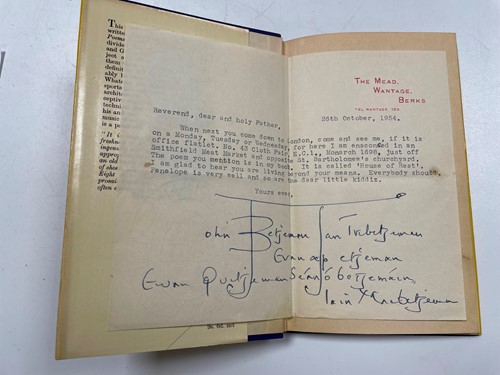 written
Poems
divide
and G
ject a
them
definit
ably b
What
sports
archit
music
is a p
"It i
an old
Eight
often c
THE MEAD,
WANTAGE,
BERKS
TEL WANTAGE 150.
25th October, 1954.
Reverend, dear and holy Father,
When next you come down to London, come and see me, if it is
on a Monday, Tuesday or Wednesday, for here I am ensconced in an
office flatlet. No. 43 Cloth Fair, E.C.1, Monarch 1698, just off
Smithfield Meat Market and opposite St. Bartholomew's churchyard.
The poem you mention is in my book. It is called 'House of Rest'.
I am glad to hear you are living beyond your means. Everybody should.
Penelope is very well and so are the dear little kiddiz.
Yours ever,
John Betjeman Jan Trebetjeman
Evan ap etjeman
Ewan Quetjeman Seán ó betjemáin
Iain